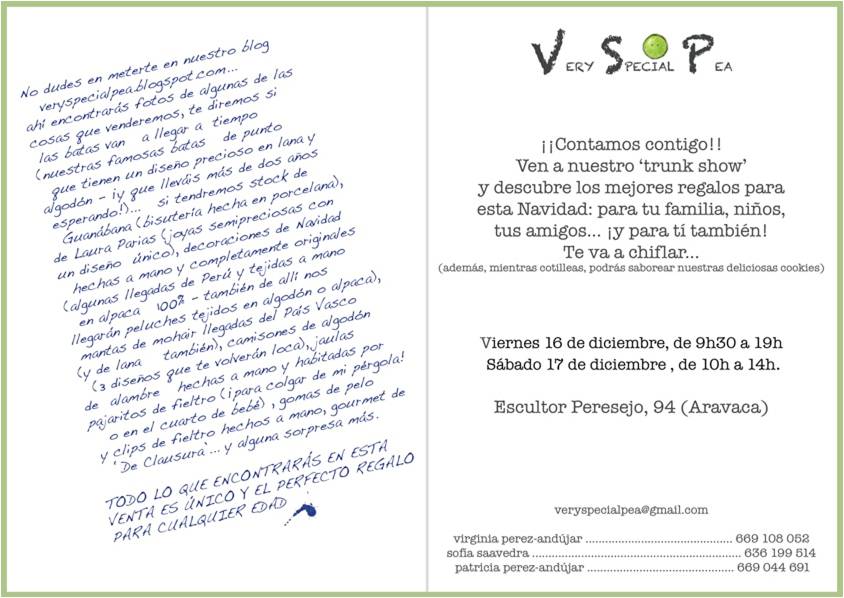 No dudes en meterte en nuestro blog
veryspecialpea.blogspot.com...
ahí encontrarás fotos de algunas de las
cosas que venderemos, te diremos si
las batas van a llegar a tiempo
(nuestras famosas batas de punto
que tienen un diseño precioso en lana y
algodón - ¡y que lleváis más de dos años
esperando!)... si tendremos stock de
Guanábana (bisutería hecha en porcelana),
de Laura Parias (joyas semipreciosas con
un diseño único), decoraciones de Navidad
hechas a mano y completamente originales
(algunas llegadas de Perú y tejidas a mano
en alpaca 100% - también de allí nos
llegarán peluches tejidos en algodón o alpaca),
mantas de mohair llegadas del País Vasco
(y de lana también), camisones de algodón
(3 diseños que te volverán loca), jaulas
de alambre hechas a mano y habitadas por
pajaritos de fieltro (¡para colgar de mi pérgola!
o en el cuarto de bebé) , gomas de pelo
y clips de fieltro hechos a mano, gourmet de
'De Clausura'... y alguna sorpresa más.
TODO LO QUE ENCONTRARÁS EN ESTA
VENTA ES ÚNICO Y EL PERFECTO REGALO
PARA CUALQUIER EDAD
VERY SPECIAL PEA
¡¡Contamos contigo!!
Ven a nuestro 'trunk show'
y descubre los mejores regalos para
esta Navidad: para tu familia, niños,
tus amigos... ¡y para tí también!
Te va a chiflar...
(además, mientras cotilleas, podrás saborear nuestras deliciosas cookies)
Viernes 16 de diciembre, de 9h30 a 19h
Sábado 17 de diciembre , de 10h a 14h.
Escultor Peresejo, 94 (Aravaca)
veryspecialpea@gmail.com
virginia perez-andújar ............................................. 669 108 052
sofía saavedra ................................................................ 636 199 514
patricia perez-andújar ............................................. 669 044 691